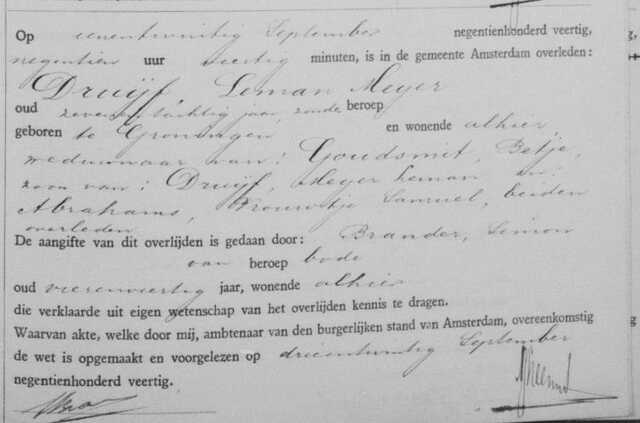 Op eenentwintig September negentienhonderd veertig,
negentien uur veertig minuten, is in de gemeente Amsterdam overleden:
Druijf, Leman Meyer
oud zevenentachtig jaar, zonder beroep
geboren te Groningen en wonende alhier,
weduwnaar van: Goudsmit, Betje,
zoon van: Druijf, Meyer Leman en:
Abrahams, Vrouwtje Samuel, beiden
overleden
De aangifte van dit overlijden is gedaan door: Brander, Simon
van beroep bode
oud vierenveertig jaar, wonende alhier
die verklaarde uit eigen wetenschap van het overlijden kennis te dragen.
Waarvan akte, welke door mij, ambtenaar van den burgerlijken stand van Amsterdam, overeenkomstig
de wet is opgemaakt en voorgelezen op drieentwintig September
negentienhonderd veertig.